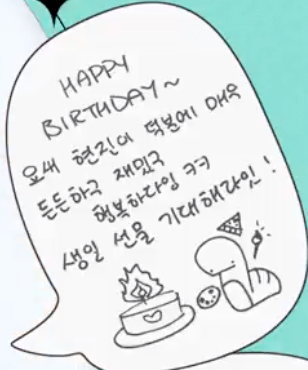 HAPPY
BIRTHDAY~
요새 현진이 덕분에 매우
든든하국 재밌국
행복하다잉 ㅋㅋ
생일 선물 기대해라잇!